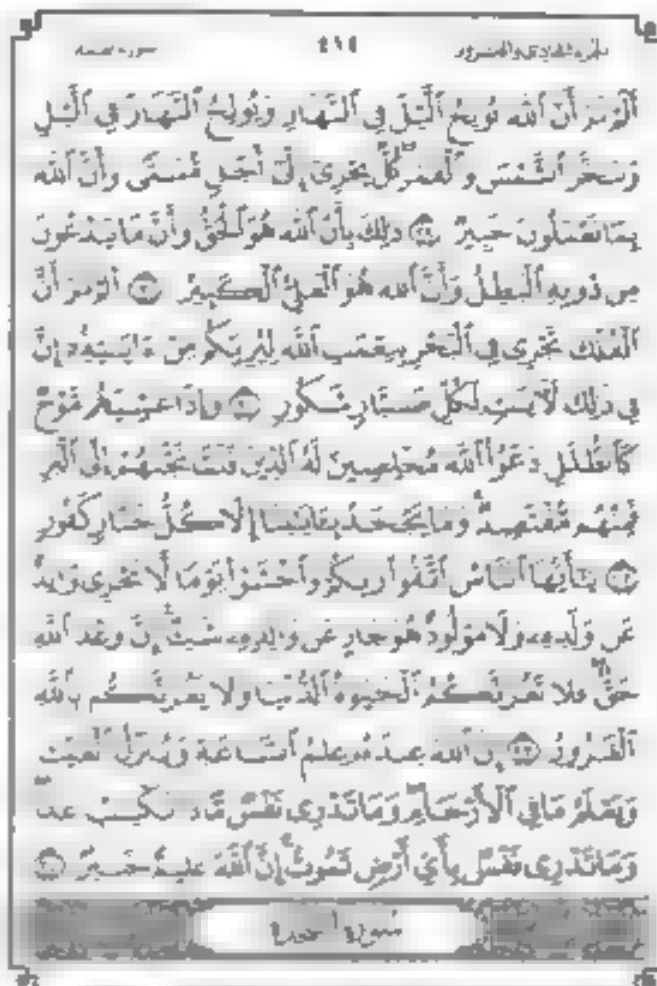 سورة لقمان ٤١٤ الجزء الحادي والعشرون
أَلَمْ تَرَ أَنَّ ٱللَّهَ يُولِجُ ٱلَّيْلَ فِى ٱلنَّهَارِ وَيُولِجُ ٱلنَّهَارَ فِى ٱلَّيْلِ
وَسَخَّرَ ٱلشَّمْسَ وَٱلْقَمَرَ كُلٌّ يَجْرِىٓ إِلَىٰٓ أَجَلٍ مُّسَمًّى وَأَنَّ ٱللَّهَ
بِمَا تَعْمَلُونَ خَبِيرٌ ٢٩ ذَٰلِكَ بِأَنَّ ٱللَّهَ هُوَ ٱلْحَقُّ وَأَنَّ مَا يَدْعُونَ
مِن دُونِهِ ٱلْبَٰطِلُ وَأَنَّ ٱللَّهَ هُوَ ٱلْعَلِىُّ ٱلْكَبِيرُ ٣٠ أَلَمْ تَرَ أَنَّ
ٱلْفُلْكَ تَجْرِى فِى ٱلْبَحْرِ بِنِعْمَتِ ٱللَّهِ لِيُرِيَكُم مِّنْ ءَايَٰتِهِۦٓ إِنَّ
فِى ذَٰلِكَ لَءَايَٰتٍ لِّكُلِّ صَبَّارٍ شَكُورٍ ٣١ وَإِذَا غَشِيَهُم مَّوْجٌ
كَٱلظُّلَلِ دَعَوُا۟ ٱللَّهَ مُخْلِصِينَ لَهُ ٱلدِّينَ فَلَمَّا نَجَّىٰهُمْ إِلَى ٱلْبَرِّ
فَمِنْهُم مُّقْتَصِدٌ وَمَا يَجْحَدُ بِـَٔايَٰتِنَآ إِلَّا كُلُّ خَتَّارٍ كَفُورٍ
٣٢ يَٰٓأَيُّهَا ٱلنَّاسُ ٱتَّقُوا۟ رَبَّكُمْ وَٱخْشَوْا۟ يَوْمًا لَّا يَجْزِى وَالِدٌ
عَن وَلَدِهِۦ وَلَا مَوْلُودٌ هُوَ جَازٍ عَن وَالِدِهِۦ شَيْـًٔا إِنَّ وَعْدَ ٱللَّهِ
حَقٌّ فَلَا تَغُرَّنَّكُمُ ٱلْحَيَوٰةُ ٱلدُّنْيَا وَلَا يَغُرَّنَّكُم بِٱللَّهِ
ٱلْغَرُورُ ٣٣ إِنَّ ٱللَّهَ عِندَهُۥ عِلْمُ ٱلسَّاعَةِ وَيُنَزِّلُ ٱلْغَيْثَ
وَيَعْلَمُ مَا فِى ٱلْأَرْحَامِ وَمَا تَدْرِى نَفْسٌ مَّاذَا تَكْسِبُ غَدًا
وَمَا تَدْرِى نَفْسٌۢ بِأَىِّ أَرْضٍ تَمُوتُ إِنَّ ٱللَّهَ عَلِيمٌ خَبِيرٌ ٣٤
سُورَةُ السَّجْدَة